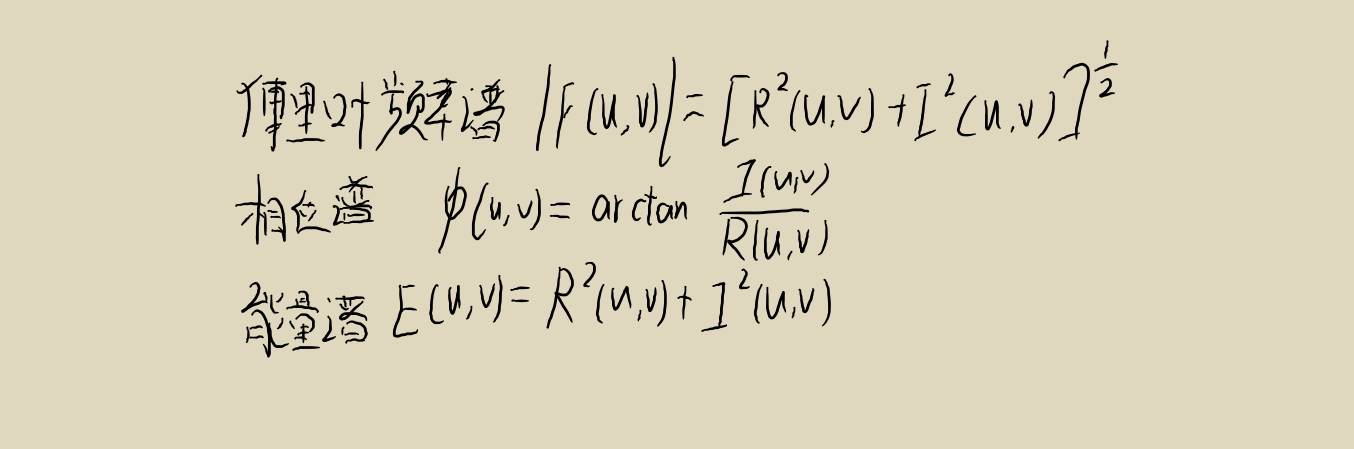 傅里叶频率谱 |F(u,v)| = [R²(u,v) + I²(u,v)]^{1/2}
相位谱 φ(u,v) = arctan \frac{I(u,v)}{R(u,v)}
能量谱 E(u,v) = R²(u,v) + I²(u,v)